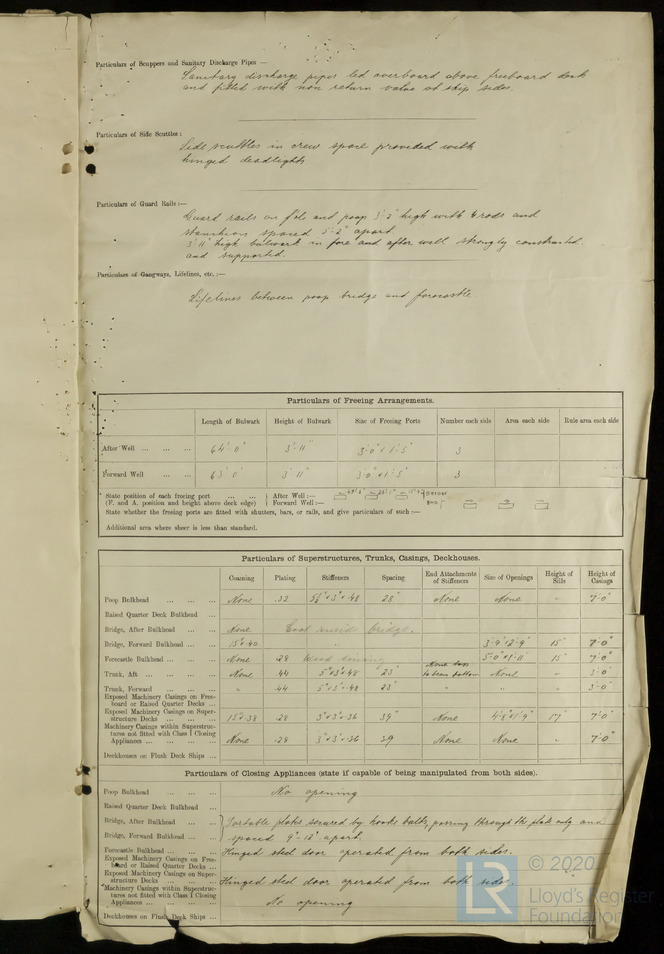 Particulars of Scuppers and Sanitary Discharge Pipes —
Sanitary discharge pipes led overboard above freeboard deck
and fitted with non return valve at ship sides.
Particulars of Side Scuttles :
Side scuttles in crew space provided with
hinged deadlights
Particulars of Guard Rails :—
Guard rails on f'cle and poop 3'-2" high with 4 rods and
stanchion spaced 5'-2" apart
3'-11" high bulwark in fore and after well strongly constructed
and supported.
Particulars of Gangways, Lifelines, etc. :—
Lifelines between poop bridge and forecastle
Particulars of Freeing Arrangements.
Length of Bulwark Height of Bulwark Size of Freeing Ports Number each side Area each side Rule area each side
After Well ... ... ... 64'-0" 3'-11" 3'-0" x 1'-5" 3
Forward Well ... ... 63'0" 3'11" 3'-0" x 1'-5" 3
State position of each freeing port ... ... ... After Well :—
(F. and A. position and height above deck edge) Forward Well :—
State whether the freeing ports are fitted with shutters, bars, or rails, and give particulars of such :—
Additional area where sheer is less than standard.
Particulars of Superstructures, Trunks, Casings, Deckhouses.
Coaming Plating Stiffeners Spacing End Attachments of Stiffeners Size of Openings Height of Sills Height of Casings
Poop Bulkhead ... ... ... None .32 28" None None 7'-0"
Raised Quarter Deck Bulkhead ...
Bridge, After Bulkhead ... ... None bridge.
Bridge, Forward Bulkhead ... ... 15" x .40 3'-9" x 2'-9" 15" 7'-0"
Forecastle Bulkhead ... ... None .29 5'-0" x 1'-11" 15" 7'-0"
Trunk, Aft ... ... ... None .44 23" None 3'-0"
Trunk, Forward ... ... " .44 23" " " 3'-0"
Exposed Machinery Casings on Freeboard or Raised Quarter Decks ...
Exposed Machinery Casings on Superstructure Decks ... ... ... 15" x .38 .28 3" x 3" x .36 39" None 4'-8" x 1'-9" 17" 7'-0"
Machinery Casings within Superstructures not fitted with Class I Closing Appliances ... ... ... None .29 3" x 3" x .36 39 None None 7'-0"
Deckhouses on Flush Deck Ships ...
Particulars of Closing Appliances (state if capable of being manipulated from both sides).
Poop Bulkhead ... ... ... No opening
Raised Quarter Deck Bulkhead ...
Bridge, After Bulkhead ... ... Portable plates secured by hooks bolts, passing through the plate only and
Bridge, Forward Bulkhead ... ... spaced 9"-12" apart.
Forecastle Bulkhead ... ... Hinged steel door operated from both sides.
Exposed Machinery Casings on Freeboard or Raised Quarter Decks ...
Exposed Machinery Casings on Superstructure Decks ... ... ... Hinged steel door operated from both side.
Machinery Casings within Superstructures not fitted with Class I Closing Appliances ... ... ... No opening
Deckhouses on Flush Deck Ships ...
LR
© 2020
Lloyd's Register
Foundation